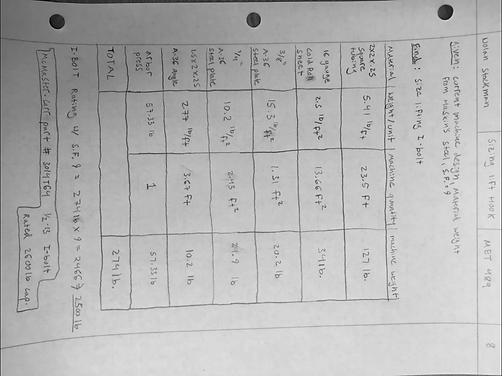 Nolan Stuckman
Sizing Lift Hook
MET 489
8
Given: Current machine design, Material weight
from Haskins Steel, S.F. 9
Find: Size lifting I-bolt
Material
weight/unit
machine quantity
machine weight
2x2x.25
Square
tubing
5.41 lb/ft
23.5 ft
127 lb.
16 gauge
Cold Roll
Sheet
2.5 lb/ft²
13.66 ft²
34 lb.
3/8"
A-36
Steel plate
15.3 lb/ft²
1.31 ft²
20.2 lb
1/4"
A-36
Steel plate
10.2 lb/ft²
lb
A-36 angle
2.77 lb/ft
3.67 ft
10.2 lb
press
57.33 lb
1
57.33 lb
TOTAL
274 lb.
I-Bolt Rating w/ S.F. 9 = 274 lb x 9 = 2466 → 2500 lb
McMaster-Carr part # 3014T64 1/2-13 I-bolt
Rated 2600 lb cap.